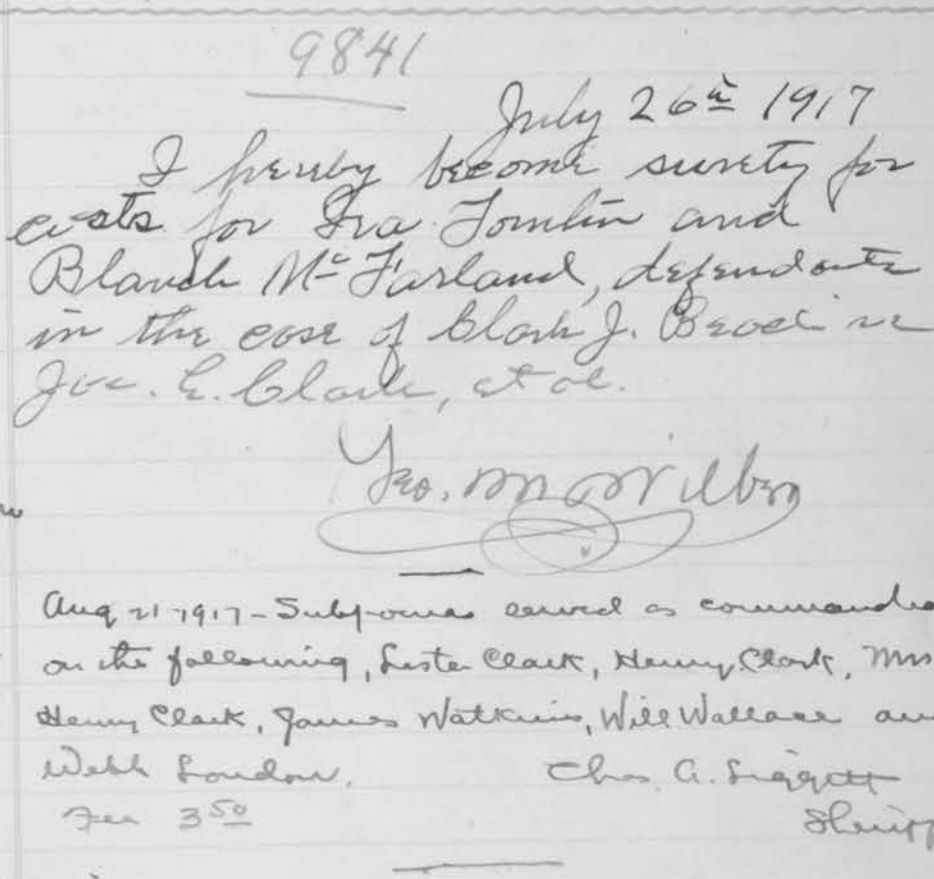 9841
July 26th 1917
I hereby become surety for
costs for Ira Tomlin and
Blanch McFarland, defendants
in the case of Clark J. vs
Jos. E. Clark, et al.
Geo. M. Wilber
Aug 21-1917-Subpoenas served as commanded
on the following, Lester Clark, Henry Clark, Mrs
Henry Clark, James Watkins, Will Wallace and
Webb Loudon. Chas. A. Liggett
Fee 3.50 Sheriff